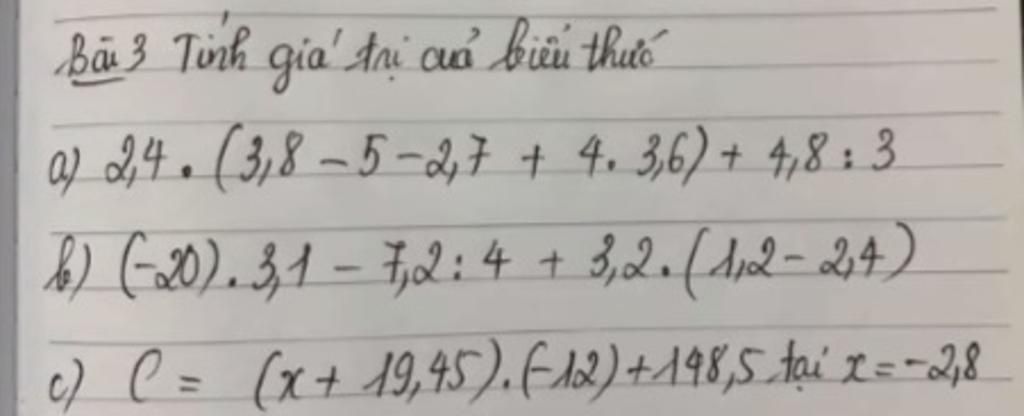 Bài 3 Tính giá trị của biểu thức
a) 2,4 . (3,8 - 5 - 2,7 + 4. 3,6) + 4,8 : 3
b) (-20) . 3,1 - 7,2 : 4 + 3,2 . (1,2 - 2,4)
c) C = (x + 19,45) . (-12) + 148,5 tại x = -2,8